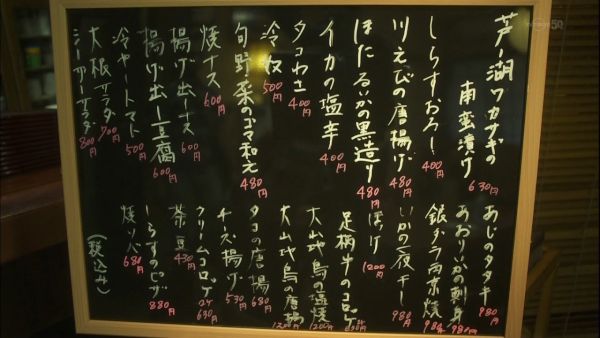 芦ノ湖ワカサギの
南蛮漬け 630円
しらすおろし 400円
川えびの唐揚げ 480円
ほたるいかの黒造り 480円
イカの塩辛 400円
タコわさ 400円
冷奴 500円
旬野菜のゴマ和え 480円
焼ナス 600円
揚げ出しナス 600円
揚げ出し豆腐 600円
冷やしトマト 500円
大根サラダ 700円
シーザーサラダ 800円
あじのタタキ 980円
あおりいかの刺身 980円
銀ダラ西京焼 980円
いかの一夜干し 980円
ほっけ 1200円
足柄牛のコロッケ 2ヶ 630円
大山地鳥の塩焼 1200円
大山地鳥の唐揚 1200円
タコの唐揚 680円
チーズ揚げ 530円
クリームコロッケ 2ヶ 630円
茶豆 430円
しらすのピザ 880円
焼ソバ 680円
(税込み)